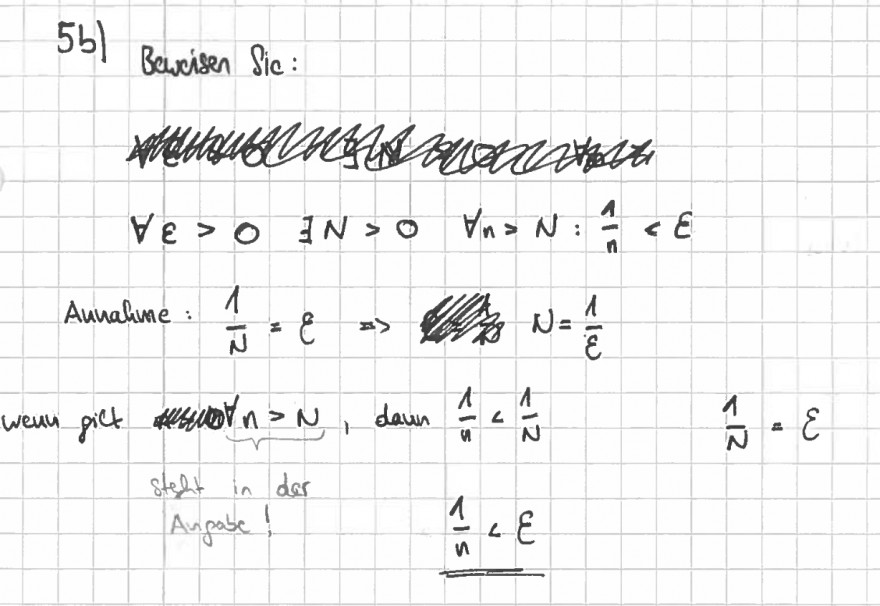 5b)
Beweisen Sie:
∀ ε > 0 ∃ N > 0 ∀n > N : 1/n < ε
Annahme : 1/N = ε => N = 1/ε
wenn gilt ∀n > N , dann 1/n < 1/N 1/N = ε
steht in der
Angabe !
1/n < ε